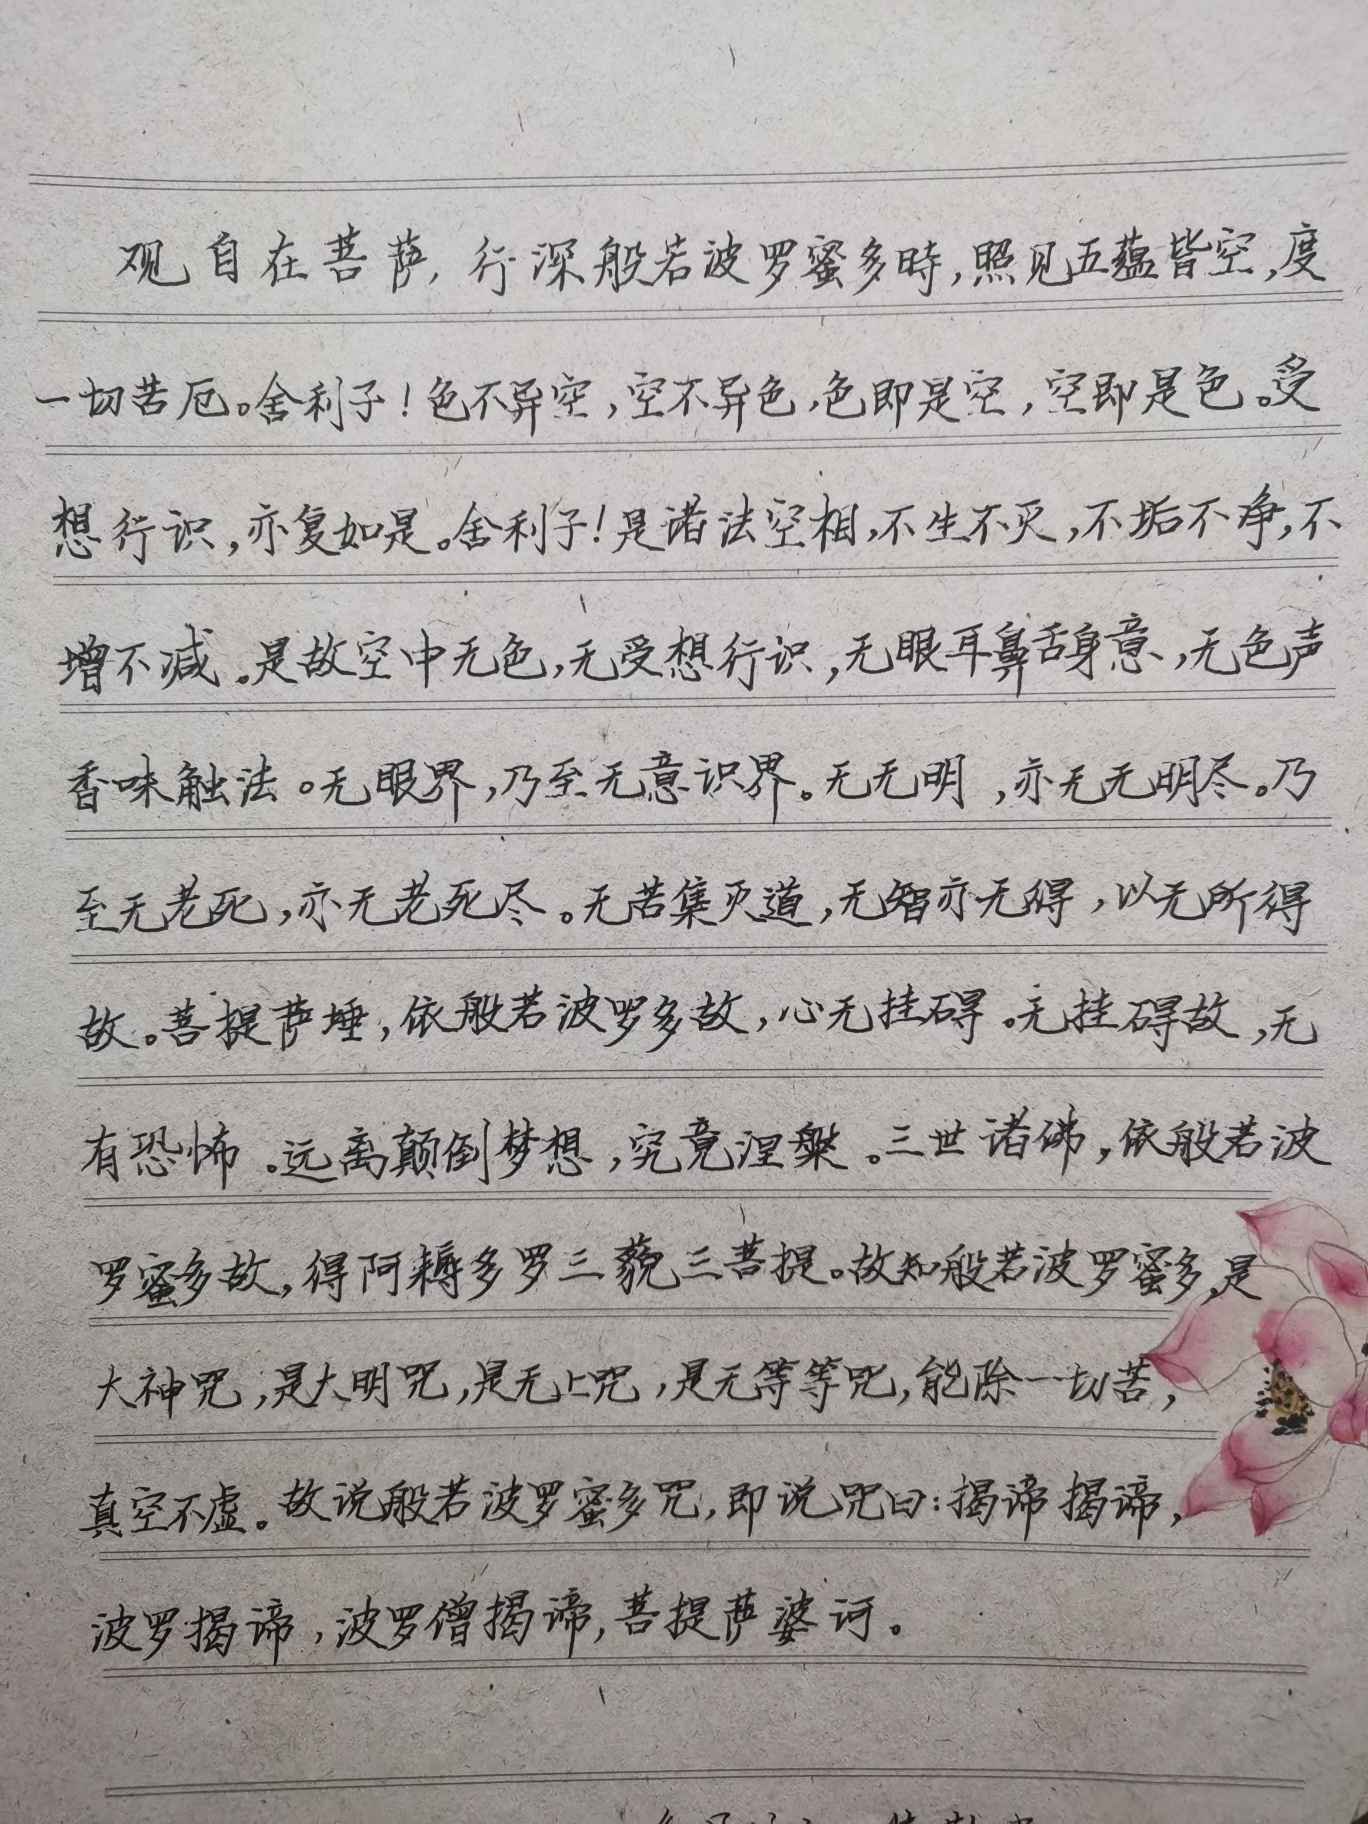 观自在菩萨,行深般若波罗蜜多時,照见五蕴皆空,度
一切苦厄。舍利子!色不异空,空不异色,色即是空,空即是色。受
想行识,亦复如是。舍利子!是诸法空相,不生不灭,不垢不净,不
增不减。是故空中无色,无受想行识,无眼耳鼻舌身意,无色声
香味触法。无眼界,乃至无意识界。无无明,亦无无明尽。乃
至无老死,亦无老死尽。无苦集灭道,无智亦无得,以无所得
故。菩提萨埵,依般若波罗多故,心无挂碍。无挂碍故,无
有恐怖。远离颠倒梦想,究竟涅槃。三世诸佛,依般若波
罗蜜多故,得阿耨多罗三藐三菩提。故知般若波罗蜜多,是
大神咒,是大明咒,是无上咒,是无等等咒,能除一切苦,
真空不虚。故说般若波罗蜜多咒,即说咒曰:揭谛揭谛,
波罗揭谛,波罗僧揭谛,菩提萨婆诃。